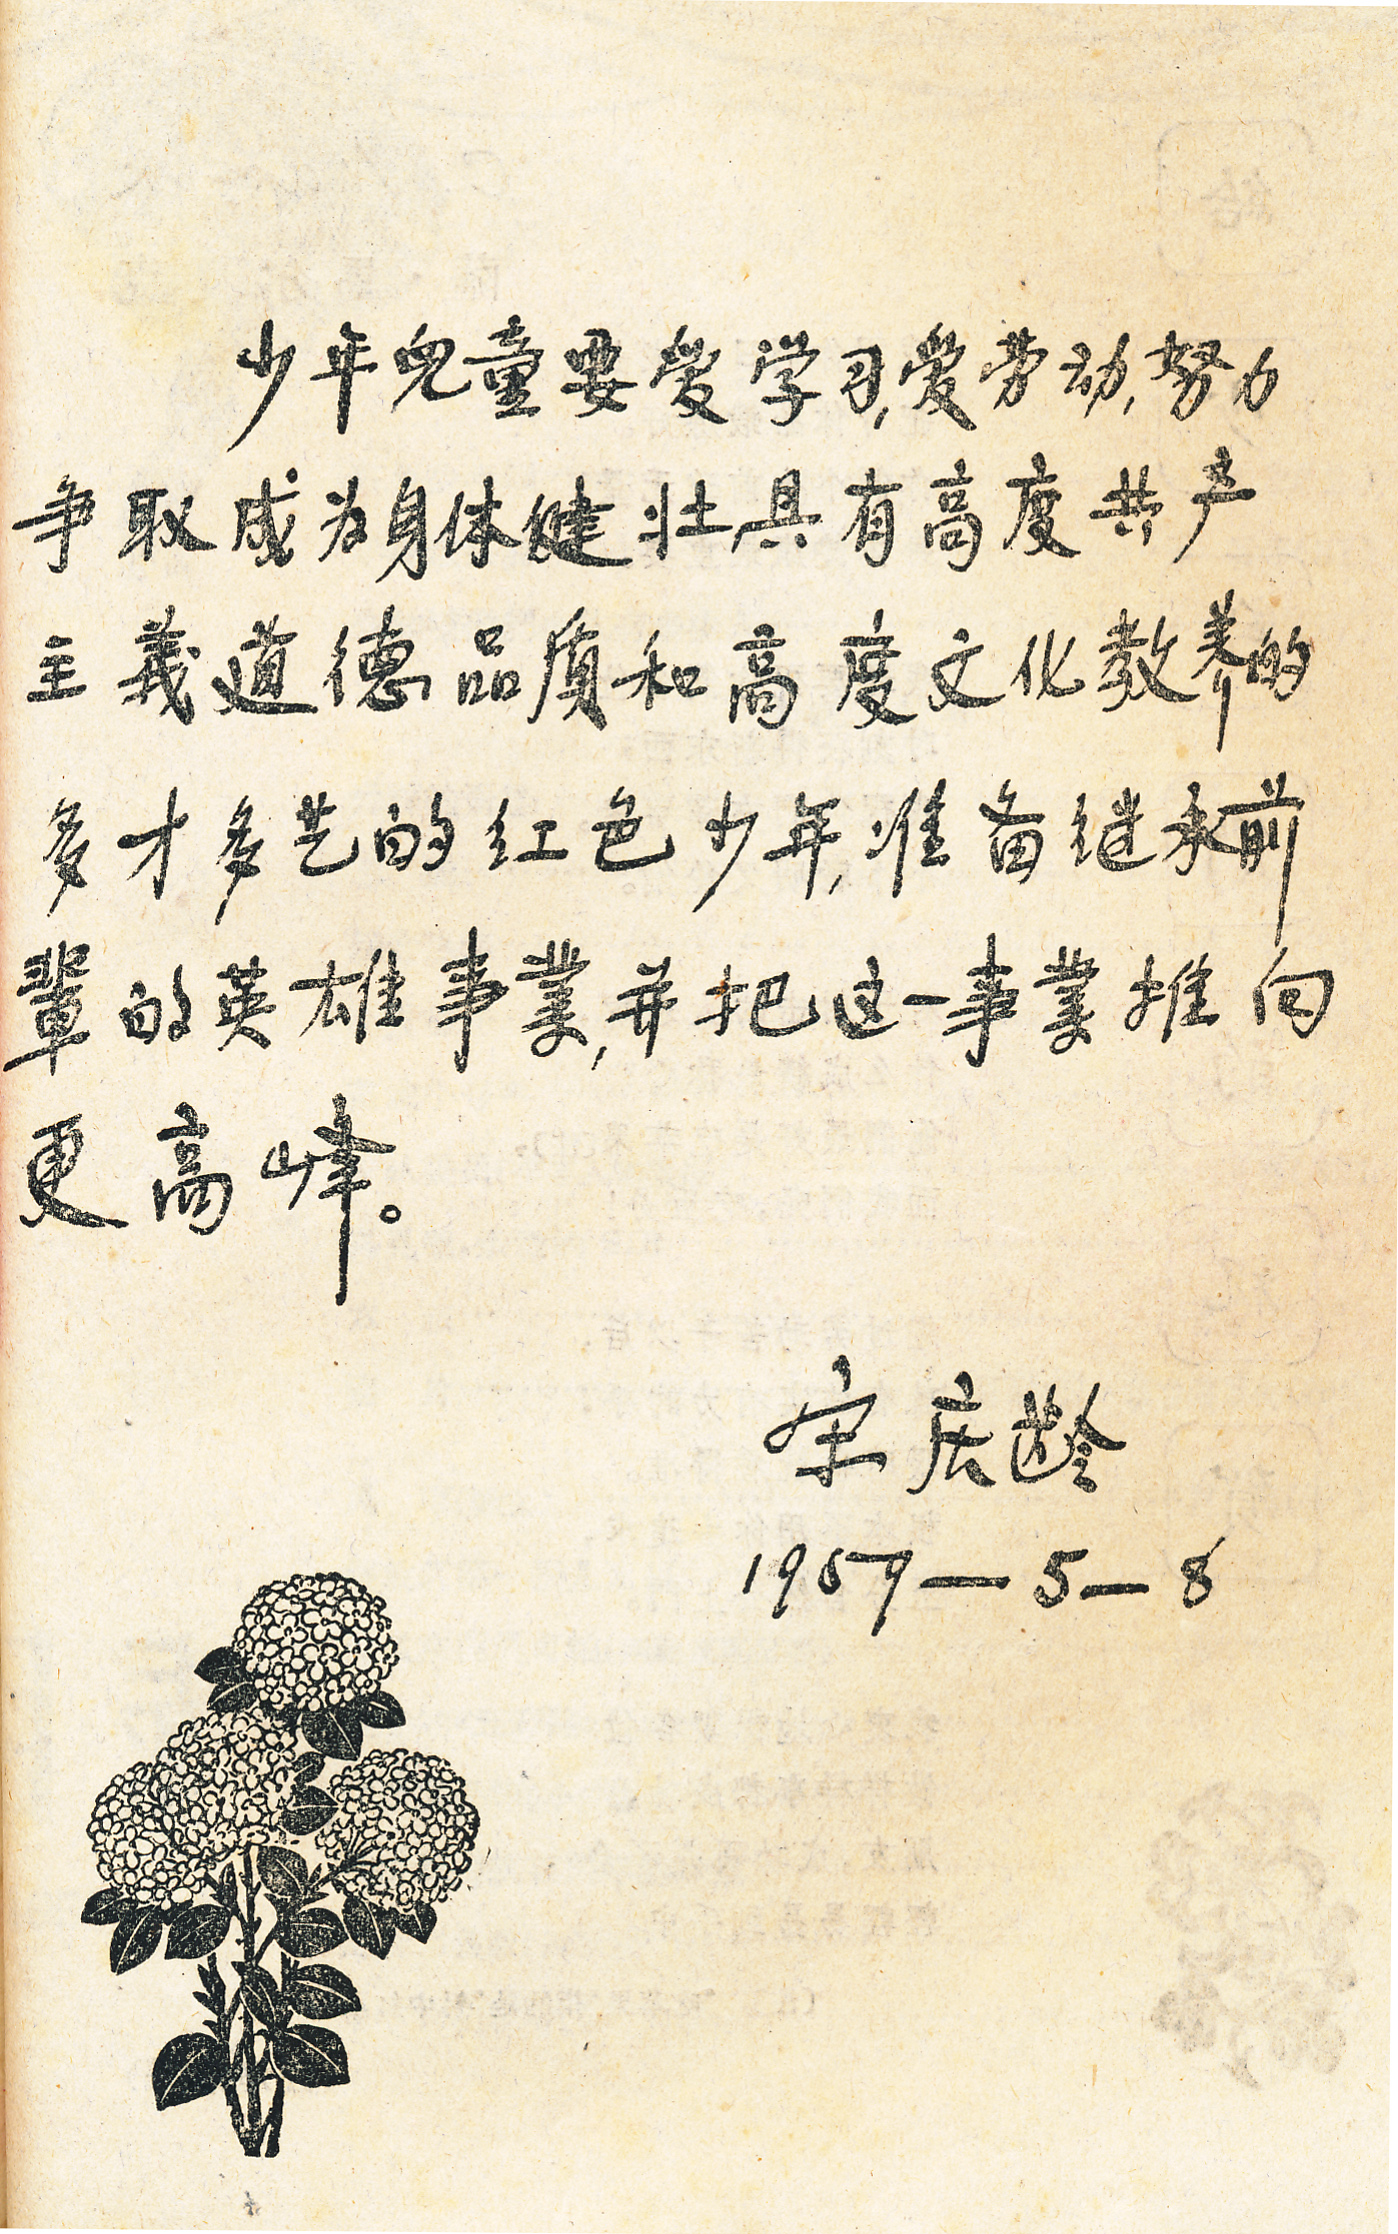 少年兒童要愛学习,爱劳动,努力
争取成为身体健壮具有高度共产
主義道德品质和高度文化教养的
多才多艺的红色少年,准备继承前
輩的英雄事業,并把这一事業推向
更高峰。
宋庆龄
1959—5—8